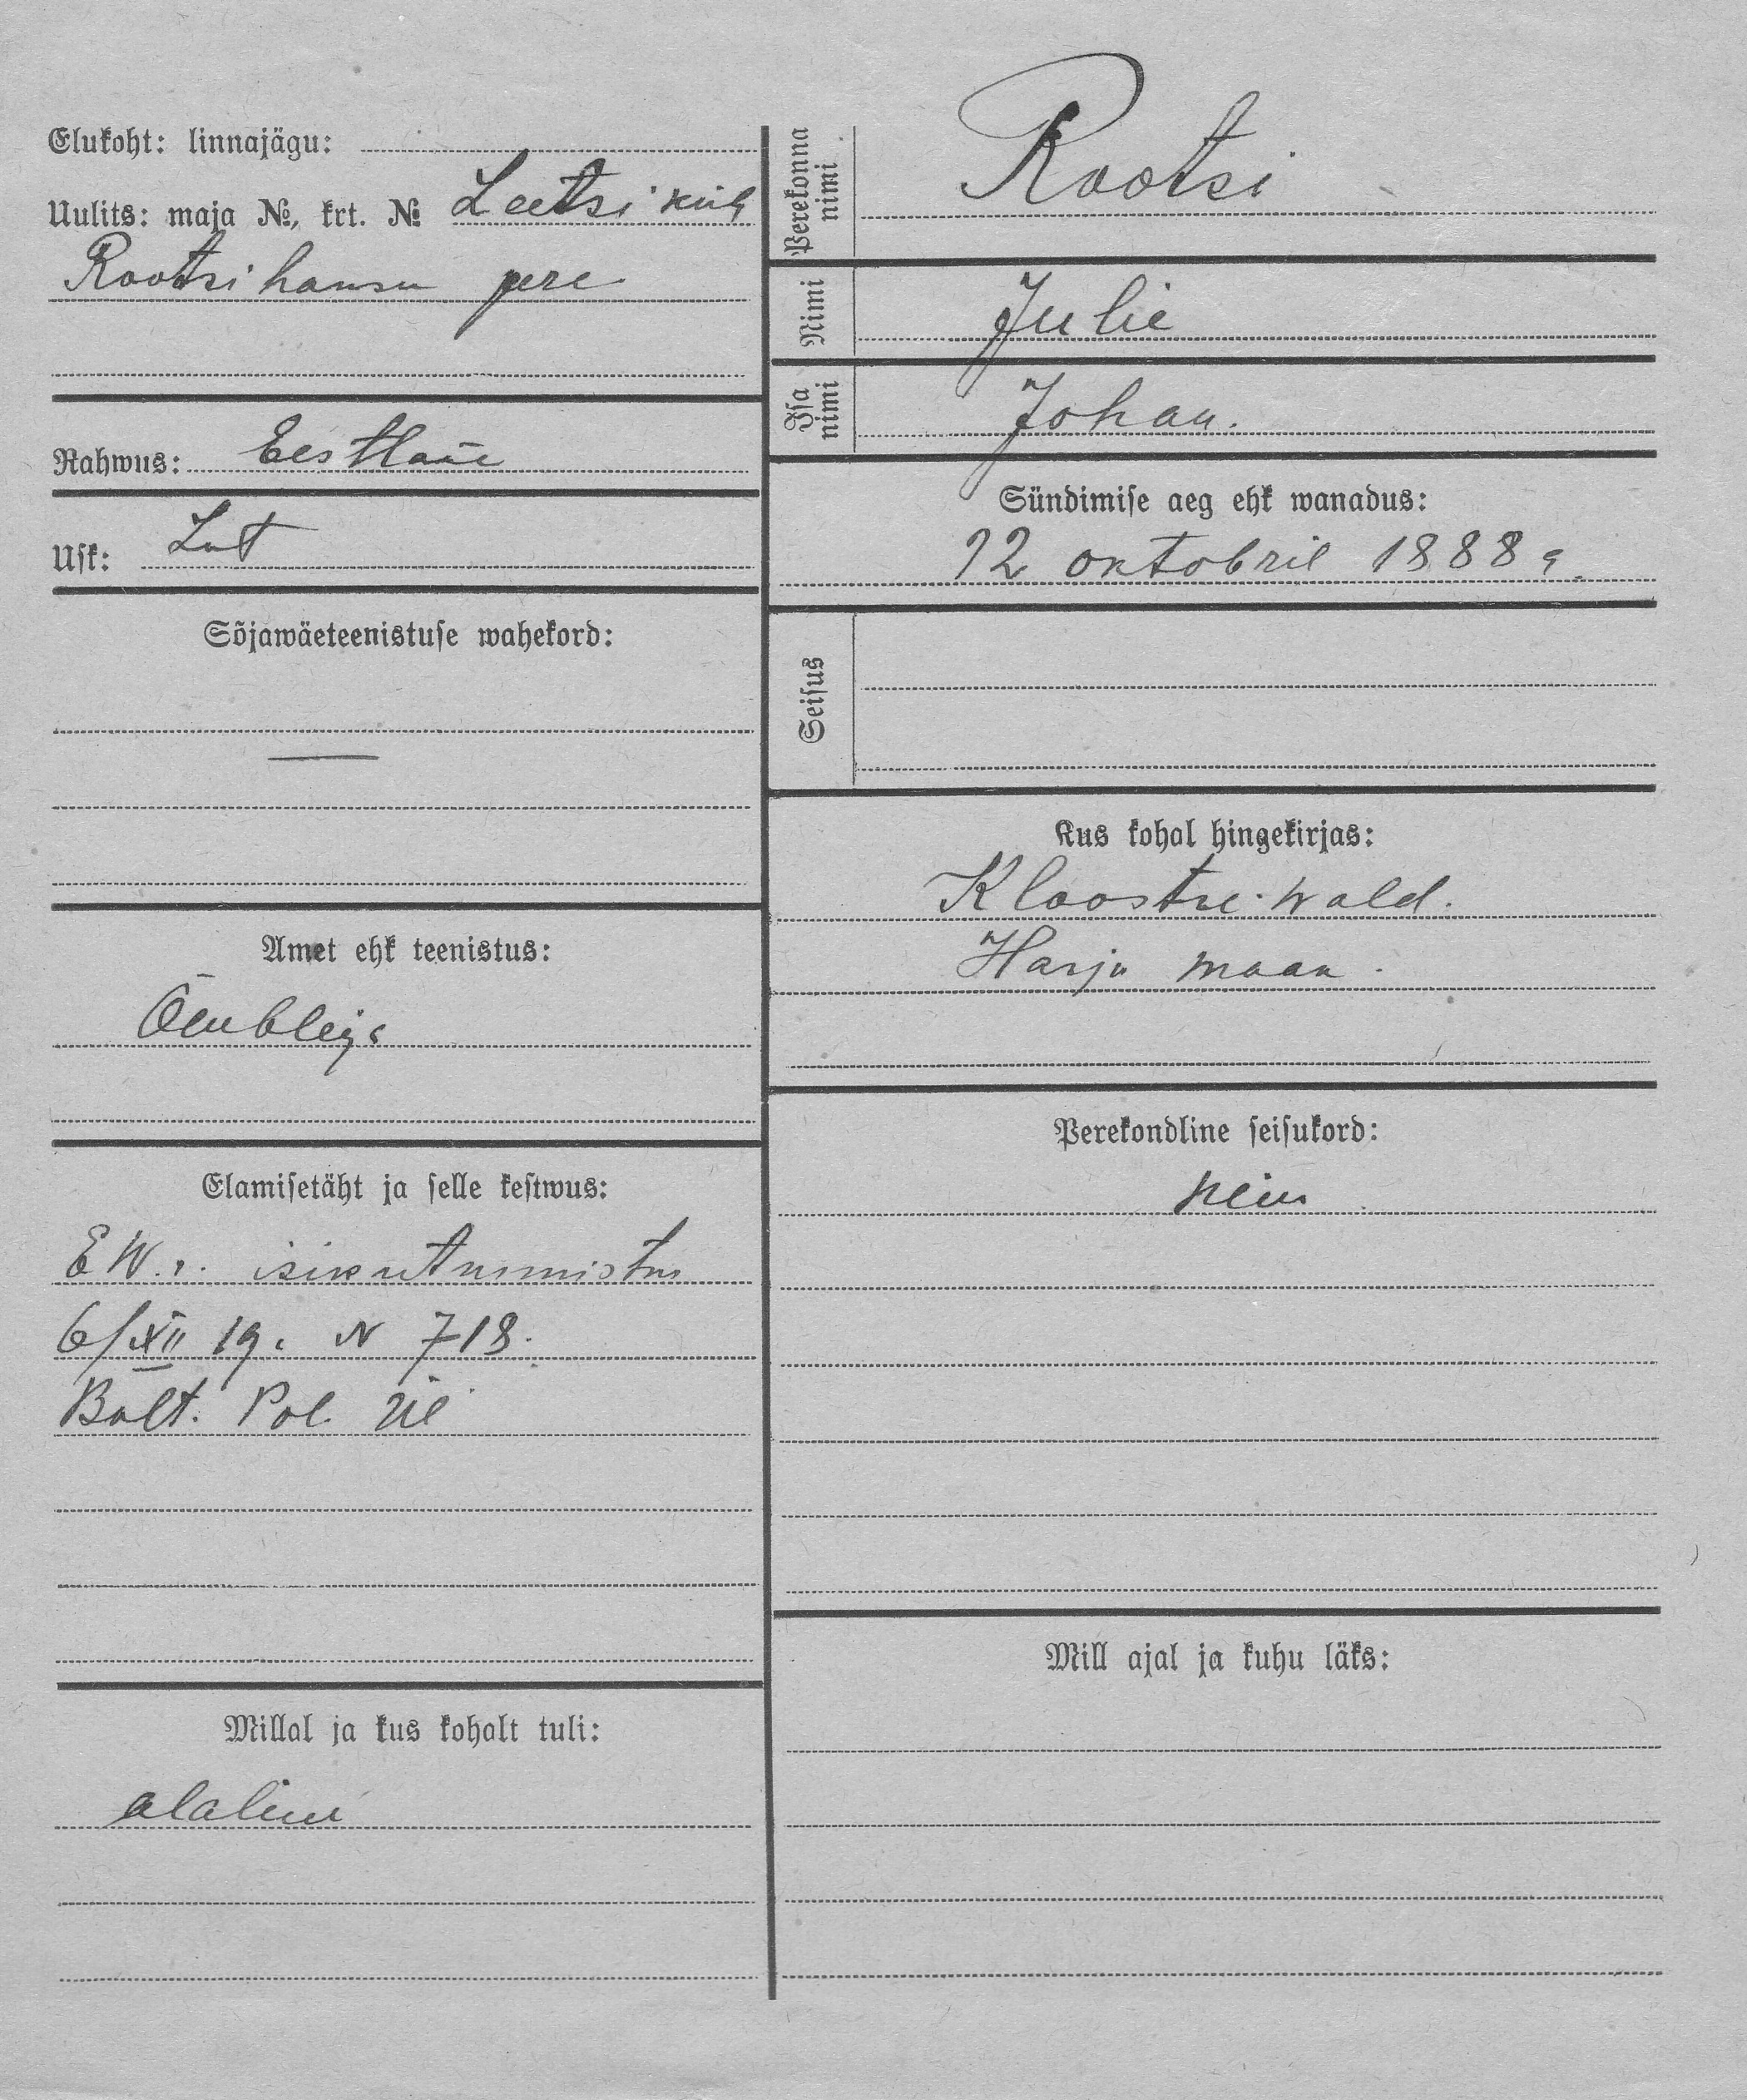 Elukoht: linnajägu:
Uulits: maja №, krt. № Leetsi küla
Rootsi hansu pere
Rahwus: Eestlane
Usk: Lut
Sõjawäeteenistuse wahekord:
—
Amet ehk teenistus:
Õmbleja
Elamisetäht ja selle kestwus:
E W. r. isikutunnistus
6/XII 19. N 718.
Balt. Pol. ül
Millal ja kus kohalt tuli:
alaline
Perekonna nimi Rootsi
Nimi Julie
Isa nimi Johan.
Sündimise aeg ehk wanadus:
12 oktobril 1888 a.
Seisus
Kus kohal hingekirjas:
Kloostri wald.
Harju maak.
Perekondline seisukord:
neiu
Mill ajal ja kuhu läks: